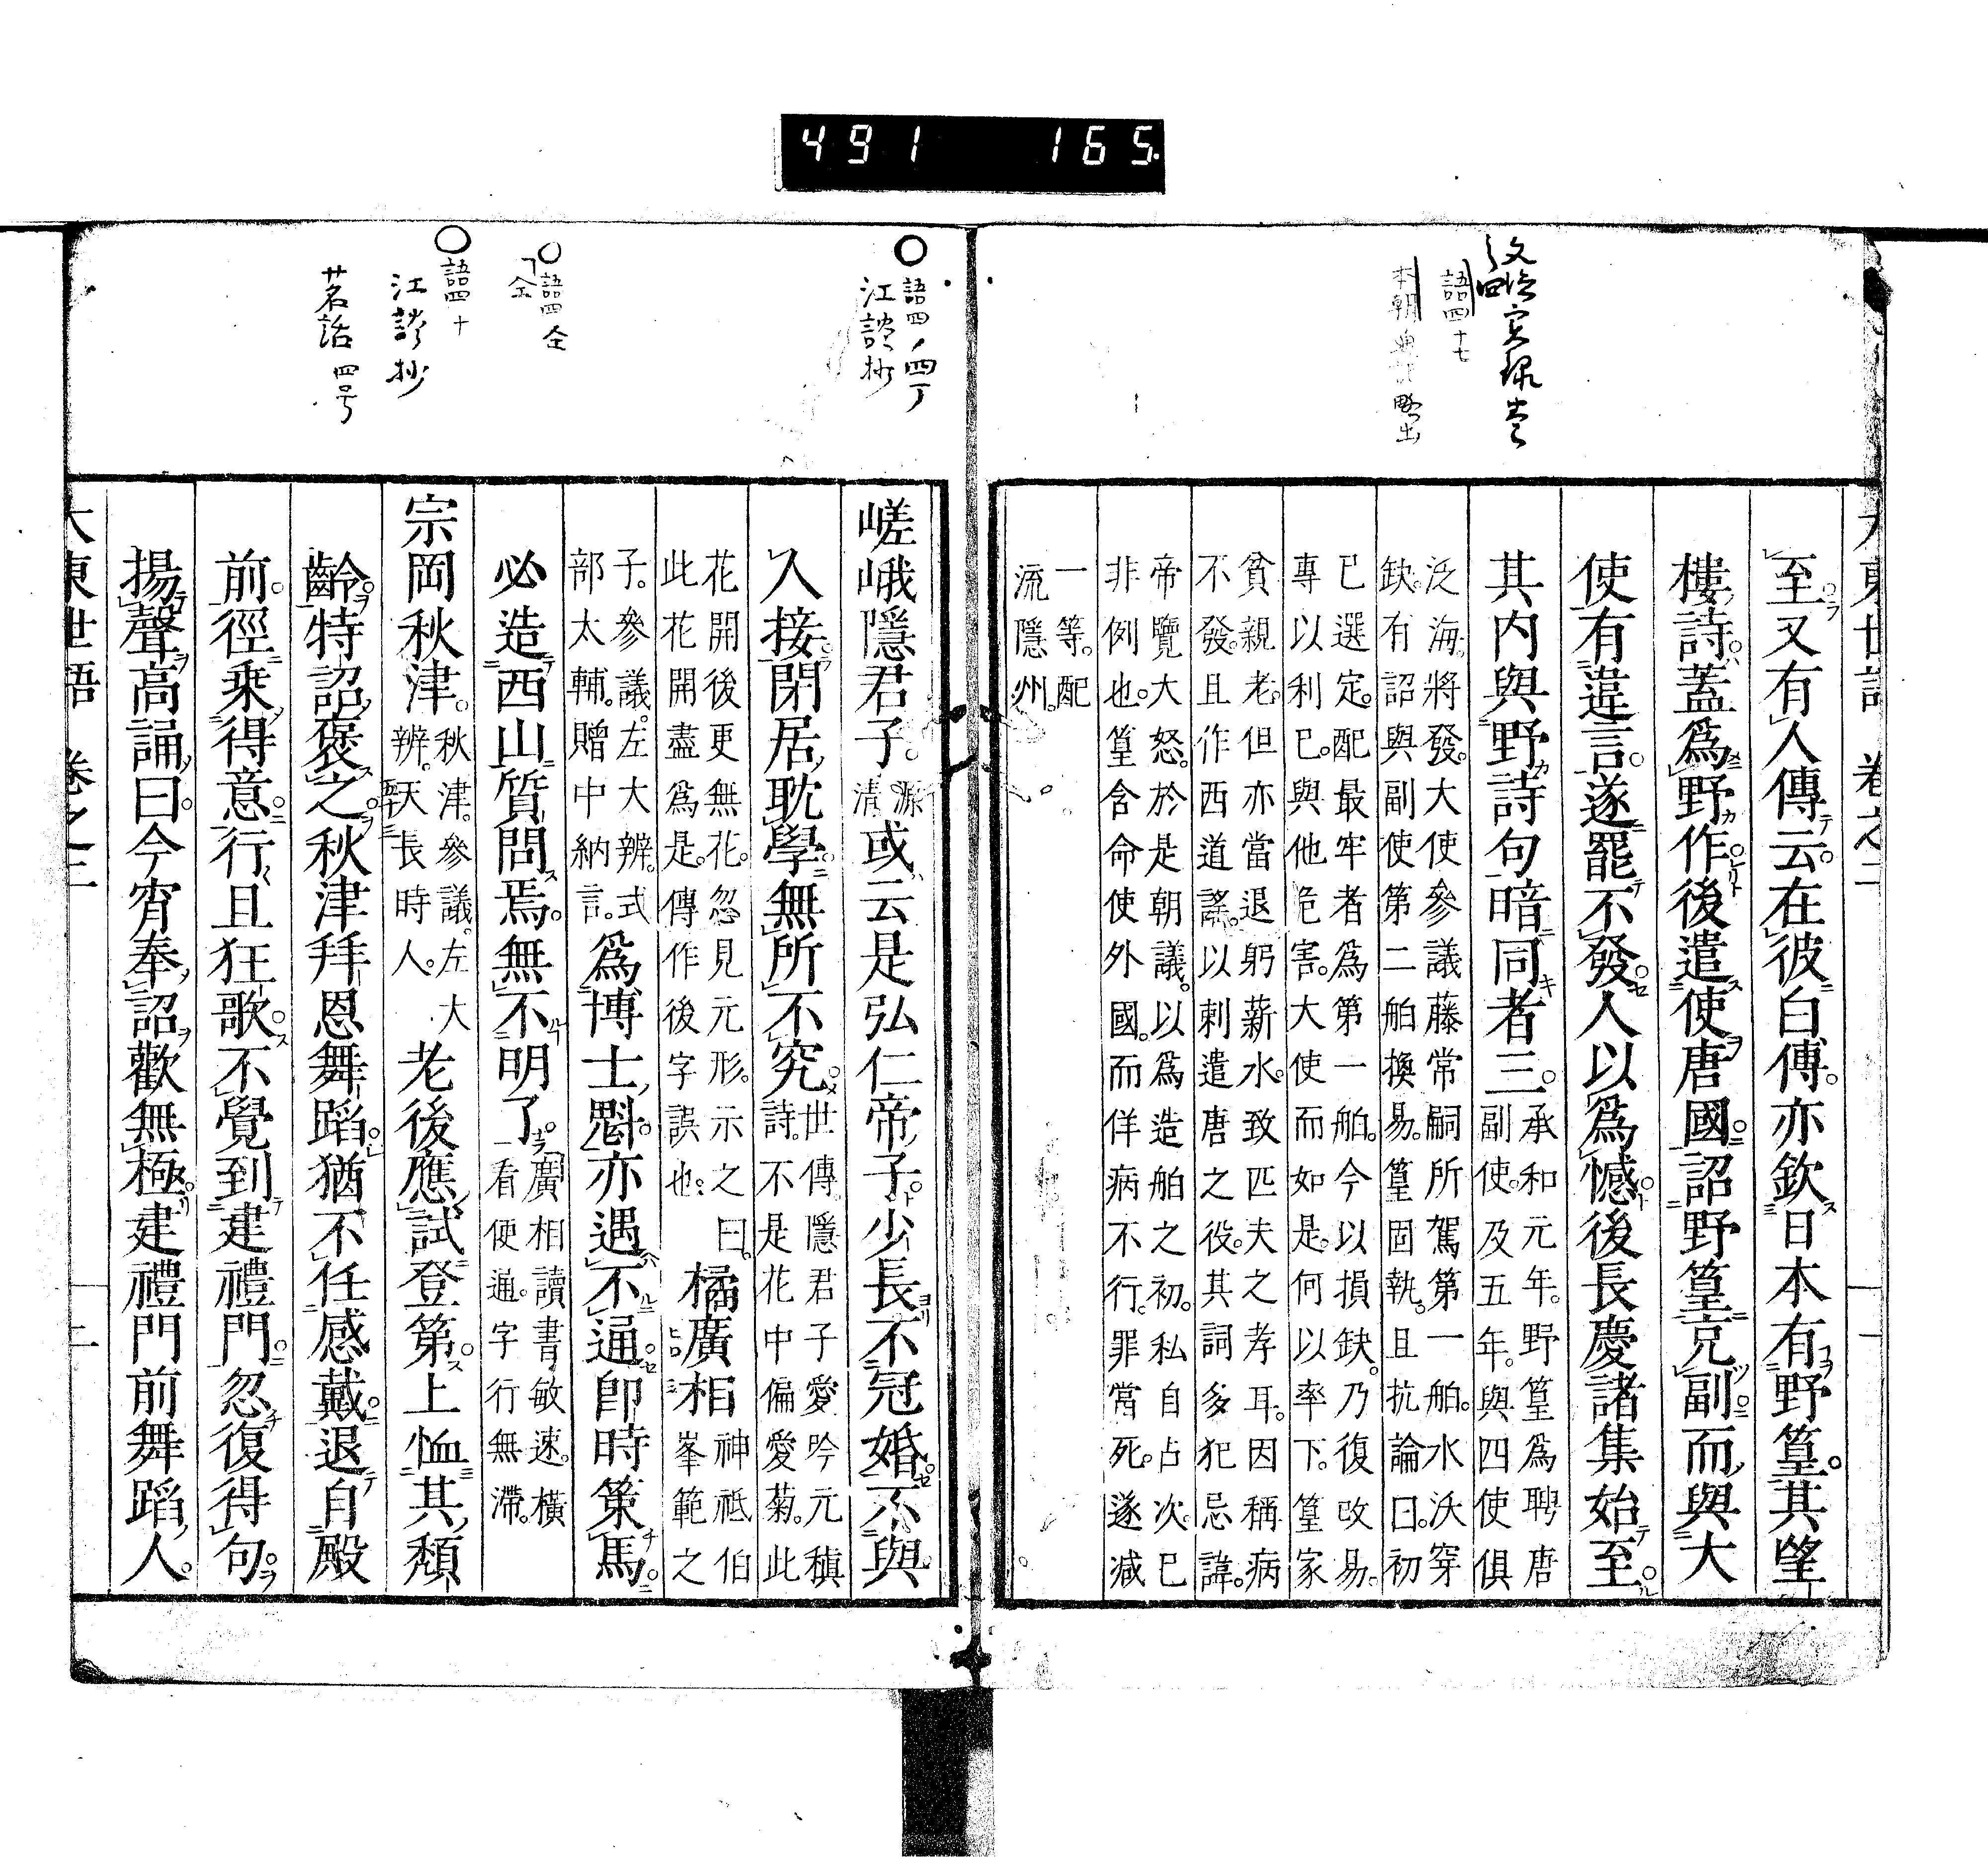 491 165
大東世語 卷之二
至又有人傳云在彼白傳亦欽日本有野篁其望
樓詩蓋爲野作後遣使唐國詔野篁充副而與大
使有違言遂罷不發人以爲憾後長慶諸集始至
其内與野詩句暗同者三
承和元年野篁爲聘唐
副使及五年與四使俱
泛海將發大使參議藤常嗣所駕第一舶水沃穿
缺有詔與副使第二舶換易篁固執且抗論曰初
已選定配最牢者爲第一舶今以損缺乃復改易
專以利已與他危害大使而如是何以率下篁家
貧親老但亦當退躬薪水致匹夫之孝耳因稱病
不發且作西道謠以刺遣唐之役其詞多犯忌諱
帝覽大怒於是朝議以爲造舶之初私自占次已
非例也篁含命使外國而佯病不行罪當死遂減
一等配
流隱州
嵯峨隱君子
源
清
或云是弘仁帝子少長不冠婚不與
人接閑居耽學無所不究
世傳隱君子愛吟元稹
詩不是花中偏愛菊此
花開後更無花忽見元形示之曰
此花開盡爲是傳作後字誤也
橘廣相
神祗伯
峯範之
子參議左大辨式
部太輔贈中納言
爲博士魁亦遇不通即時策馬
必造西山質問焉無不明了
廣相讀書敏速橫
看便通字行無滯
宗岡秋津
秋津參議左大
辨天長時人
老後應試登第上恤其頹
齡特詔褒之秋津拜恩舞蹈猶不任感戴退自殿
前徑乗得意行且狂歌不覺到建禮門忽復得句
揚聲高誦曰今宵奉詔歡無極建禮門前舞蹈人
大東世語 卷之二
語四十七
語四ノ四丁
江談抄
語四
語四十
江談抄
茗話 四号